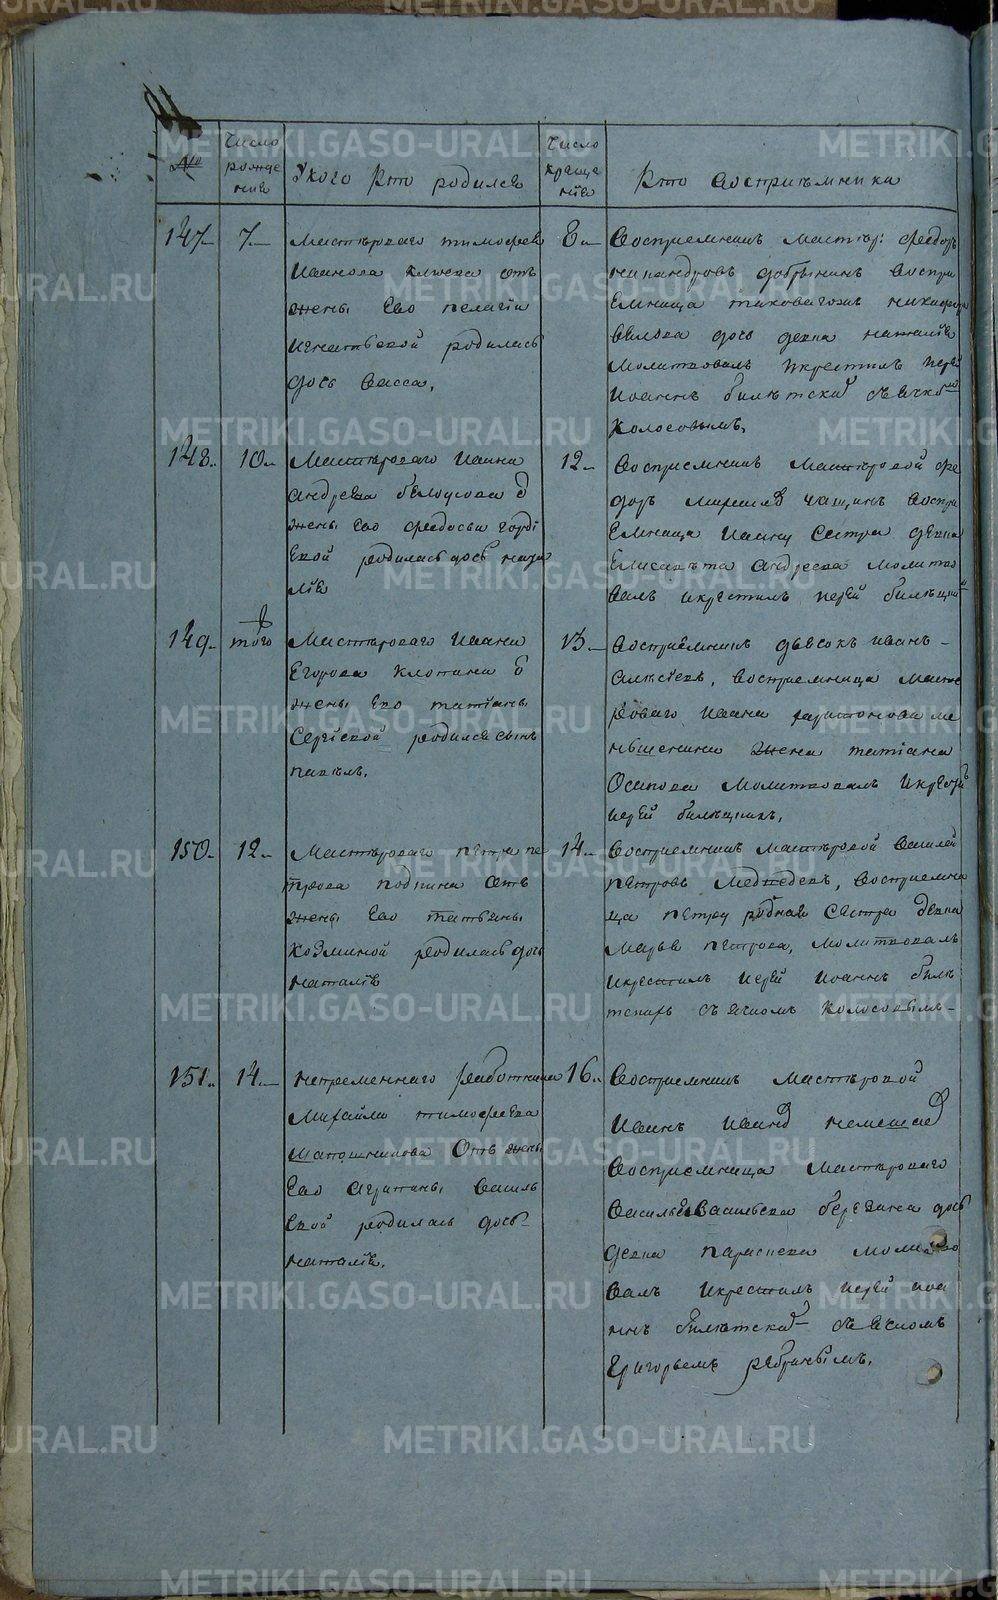 №
Число рождения
У кого кто родился
Число крещения
Кто восприемники
147. 7.
Мастероваго Тимофея
Иванова отъ
жены Его Пелагіи
Игнатьевой родилась
дочь Васса,
8
Восприемникъ мастер: Федоръ
Никандровъ Добрынинъ Воспри
Емница таковагожъ Никифора
дочь девка Наталія
Молитвовалъ и крестилъ Iерей
Иоаннъ
Колосовымъ,
148. 10
Мастероваго Ивана
Андреева Белоусова
жены Его Федосьи Горді
Евой родилась дочь Ната
лія
12
Восприемникъ Мастеровой Фе
доръ чащинъ Воспри
Емница Ивану Сестра девка
Елисавета Андреева молитво
валъ и крестилъ Iерей
149. того
Мастероваго Ивана
Егорова
жены Его татіаны
Сергіевой родился сынъ
павелъ.
13
Восприемникъ Иванъ
Алексеевъ, Восприемница Масте
роваго Ивана Харитонова Ме
ньшенина жена татіана
Осипова Молитвовалъ и крестилъ
Iерей
150. 12
Мастероваго петра пе
трова отъ
жены Его татьяны
Козминой родилась дочь
Наталія
14
Восприемникъ Мастеровой Василей
петровъ Медведевъ, Восприемни
ца петру родная Сестра девка
Марья петрова, Молитвовалъ
и крестилъ Iерей Иоаннъ
съ дьякомъ Колосовымъ
151. 14
Непременнаго работника
Михайла тимофеева
Шапошникова Отъ жены
Его Агрипины Василь
Евой родилась дочь
Наталія,
16
Восприемникъ Мастеровой
Иванъ
Восприемница Мастероваго
Василья Васильева Березина дочь
девка параскева молитво
валъ и крестилъ Iерей Иоа
ннъ съ дьякомъ
Григорьемъ
METRIKI.GASO-URAL.RU